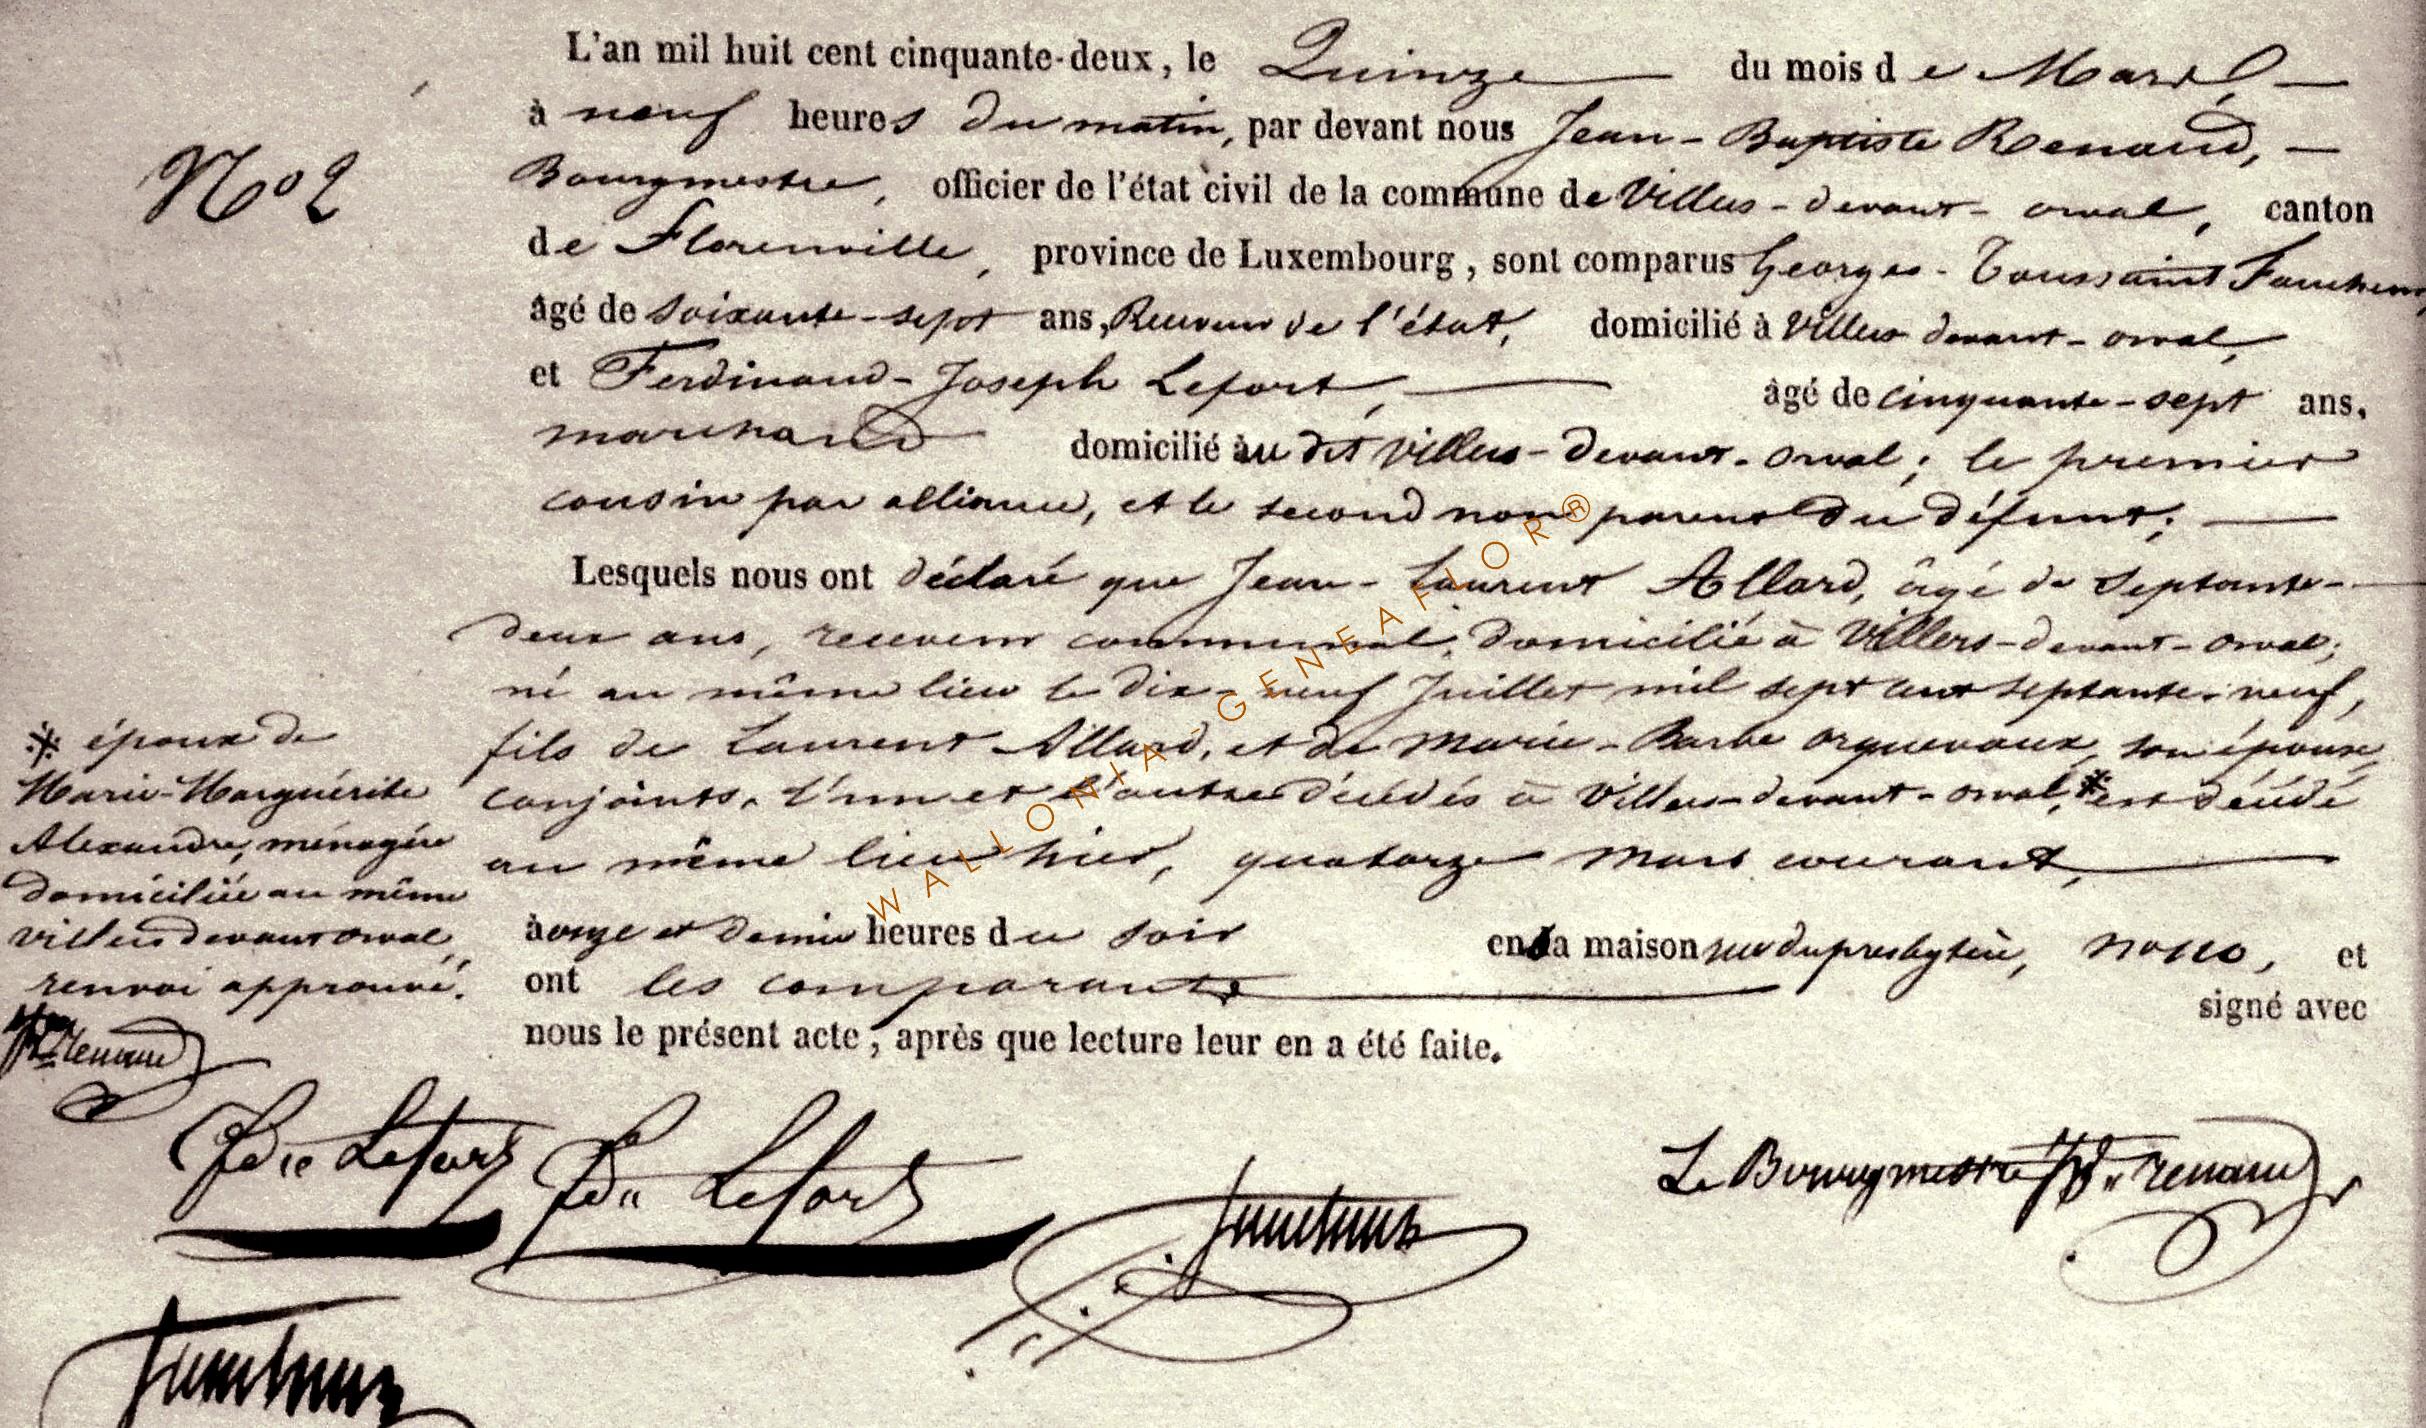 L'an mil huit cent cinquante-deux, le Quinze du mois de Mars,
à neuf heures du matin, par devant nous Jean-Baptiste Renaud,
N° 2
Bourgmestre, officier de l'état civil de la commune de Villers-devant-orval, canton
de Florenville, province de Luxembourg, sont comparus Georges-Toussaint
âgé de soixante-sept ans, Receveur de l'état, domicilié à Villers devant-orval,
et Ferdinand-Joseph Lefort, âgé de cinquante-sept ans,
marchand domicilié au dit villers-devant-orval; le premier
cousin par alliance, et le second non parent du défunt;
Lesquels nous ont déclaré que Jean-Laurent Allard, âgé de septante-
deux ans, receveur communal, domicilié à Villers-devant-orval;
né au même lieu le dix-neuf Juillet mil sept cent septante-neuf,
fils de Laurent Allard, et de Marie-Barbe orquevaux, son épouse,
conjoints, l'un et l'autre décédés à Villers-devant-orval,* est décédé
au même lieu hier, quatorze mars courant,
à onze et demie heures du soir en la maison rue du presbytère, et
ont les comparants signé avec
nous le présent acte, après que lecture leur en a été faite.
* époux de
Marie-Marguérite
Alexandre, ménagère
domiciliée au même
villers devant orval,
renvoi approuvé.
renaud
Lefort Lefort
Le Bourgmestre renaud
WALLONIA-GENEAFLOR®